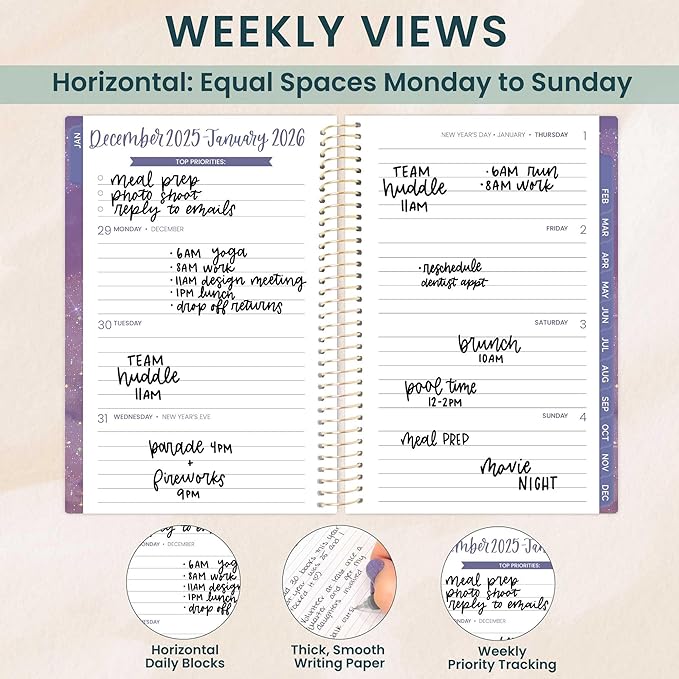 WEEKLY VIEWS
Horizontal: Equal Spaces Monday to Sunday
JAN
December 2025-January 2026
TOP PRIORITIES:
meal prep
photo shoot
reply to emails
29 MONDAY • DECEMBER
• 6AM yoga
• 8AM work
• 11AM design meeting
• 1PM lunch
• drop off returns
30 TUESDAY
TEAM
huddle
11AM
31 WEDNESDAY • NEW YEAR'S EVE
parade 4PM
+
fireworks
9PM
NEW YEAR'S DAY • JANUARY • THURSDAY 1
TEAM
huddle
11AM
• 6AM run
• 8AM work
FRIDAY 2
• reschedule
dentist appt
SATURDAY 3
brunch
10AM
pool time
12-2PM
SUNDAY 4
meal PREP
movie
NIGHT
FEB
MAR
APR
MAY
JUN
JUL
AUG
SEP
OCT
NOV
DEC
ONDAY • DECEMBER
• 6AM yog
• 8AM work
• 11AM design
• 1PM lunch
• drop off
UESDAY
Horizontal
Daily Blocks
30 books this year
Volunteer at least once a
and get my
daughters involved
Thick, Smooth
Writing Paper
mber 2025-Jan
TOP PRIORITIES:
meal prep
photo shoot
reply to emails
NDAY • DECEMBER
Weekly
Priority Tracking